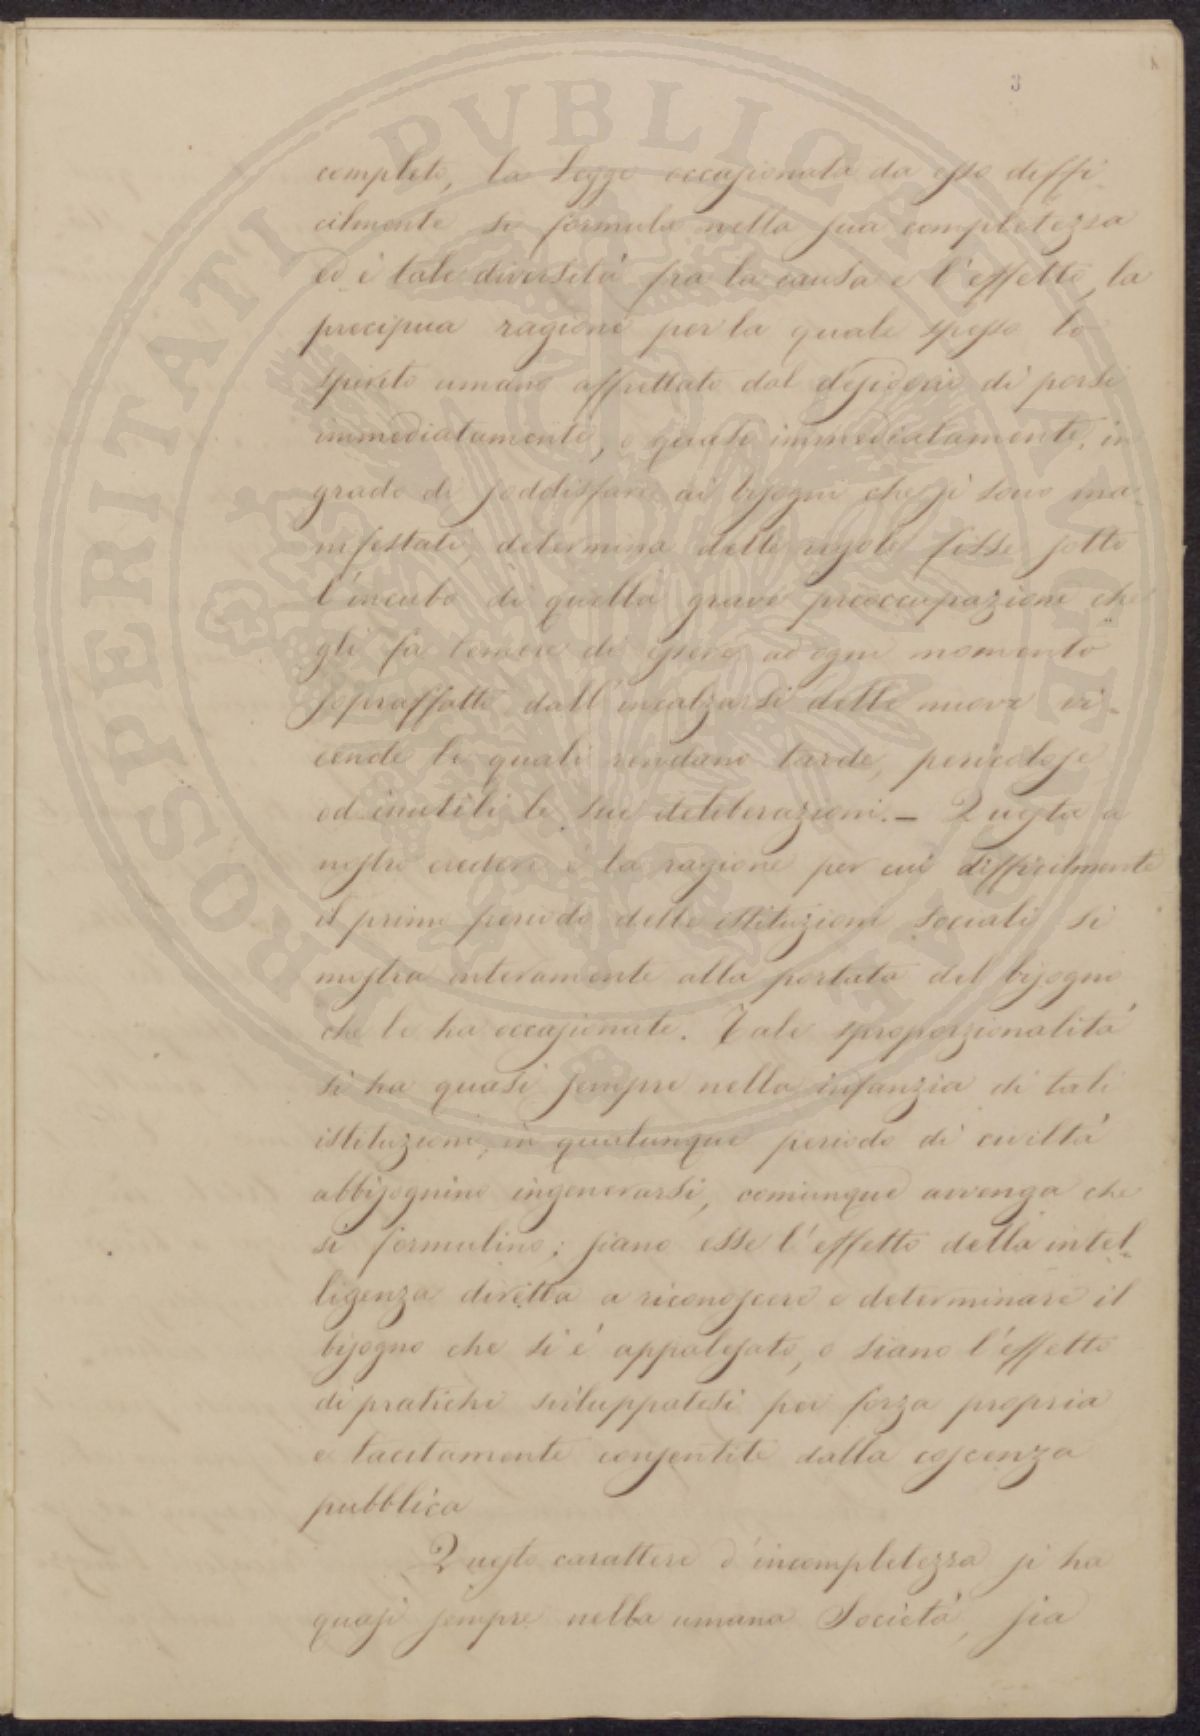 3
completo, la Legge occasionata da esso diffi-
cilmente si formula nella sua completezza
ed è tale diversità fra la causa e l'effetto, la
precipua ragione per la quale spesso lo
spirito umano affrettato dal desiderio di porsi
immediatamente, o quasi immediatamente, in
grado di soddisfare ai bisogni che si sono ma-
nifestati, determina delle regole fisse sotto
l'incubo di quella grave preoccupazione che
gli fa temere di essere ad ogni momento
sopraffatto dall'incalzarsi delle nuove vi-
cende le quali rendano tarde, pericolose
ed inutili le sue deliberazioni. — Questa a
nostro credere è la ragione per cui difficilmente
il primo periodo delle istituzioni sociali si
mostra interamente alla portata del bisogno
che le ha occasionate. Tale sproporzionalità
si ha quasi sempre nella infanzia di tali
istituzioni, in qualunque periodo di civiltà
abbisognino ingenerarsi, comunque avvenga che
si formulino; siano esse l'effetto della intel-
ligenza diretta a riconoscere e determinare il
bisogno che si è appalesato, o siano l'effetto
di pratiche sviluppatesi per forza propria
e tacitamente consentite dalla coscenza
pubblica
Questo carattere d'incompletezza si ha
quasi sempre nella umana Società, sia
PROSPERITATI PVBLICAE AVGENDAE